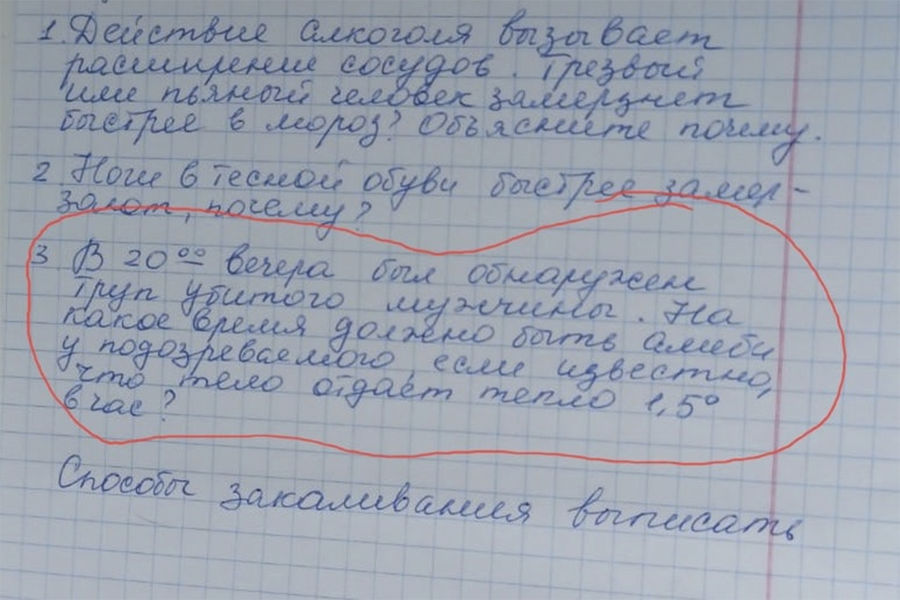 1. Действие алкоголя вызывает
расширение сосудов. Трезвый
или пьяный человек замерзнет
быстрее в мороз? Объясните почему.
2 Ноги в тесной обуви быстрее замер-
зают, почему?
3 В 20⁰⁰ вечера был обнаружен
труп убитого мужчины. На
какое время должно быть алиби
у подозреваемого, если известно,
что тело отдаёт тепло 1,5°
в час?
Способы закаливания выписать